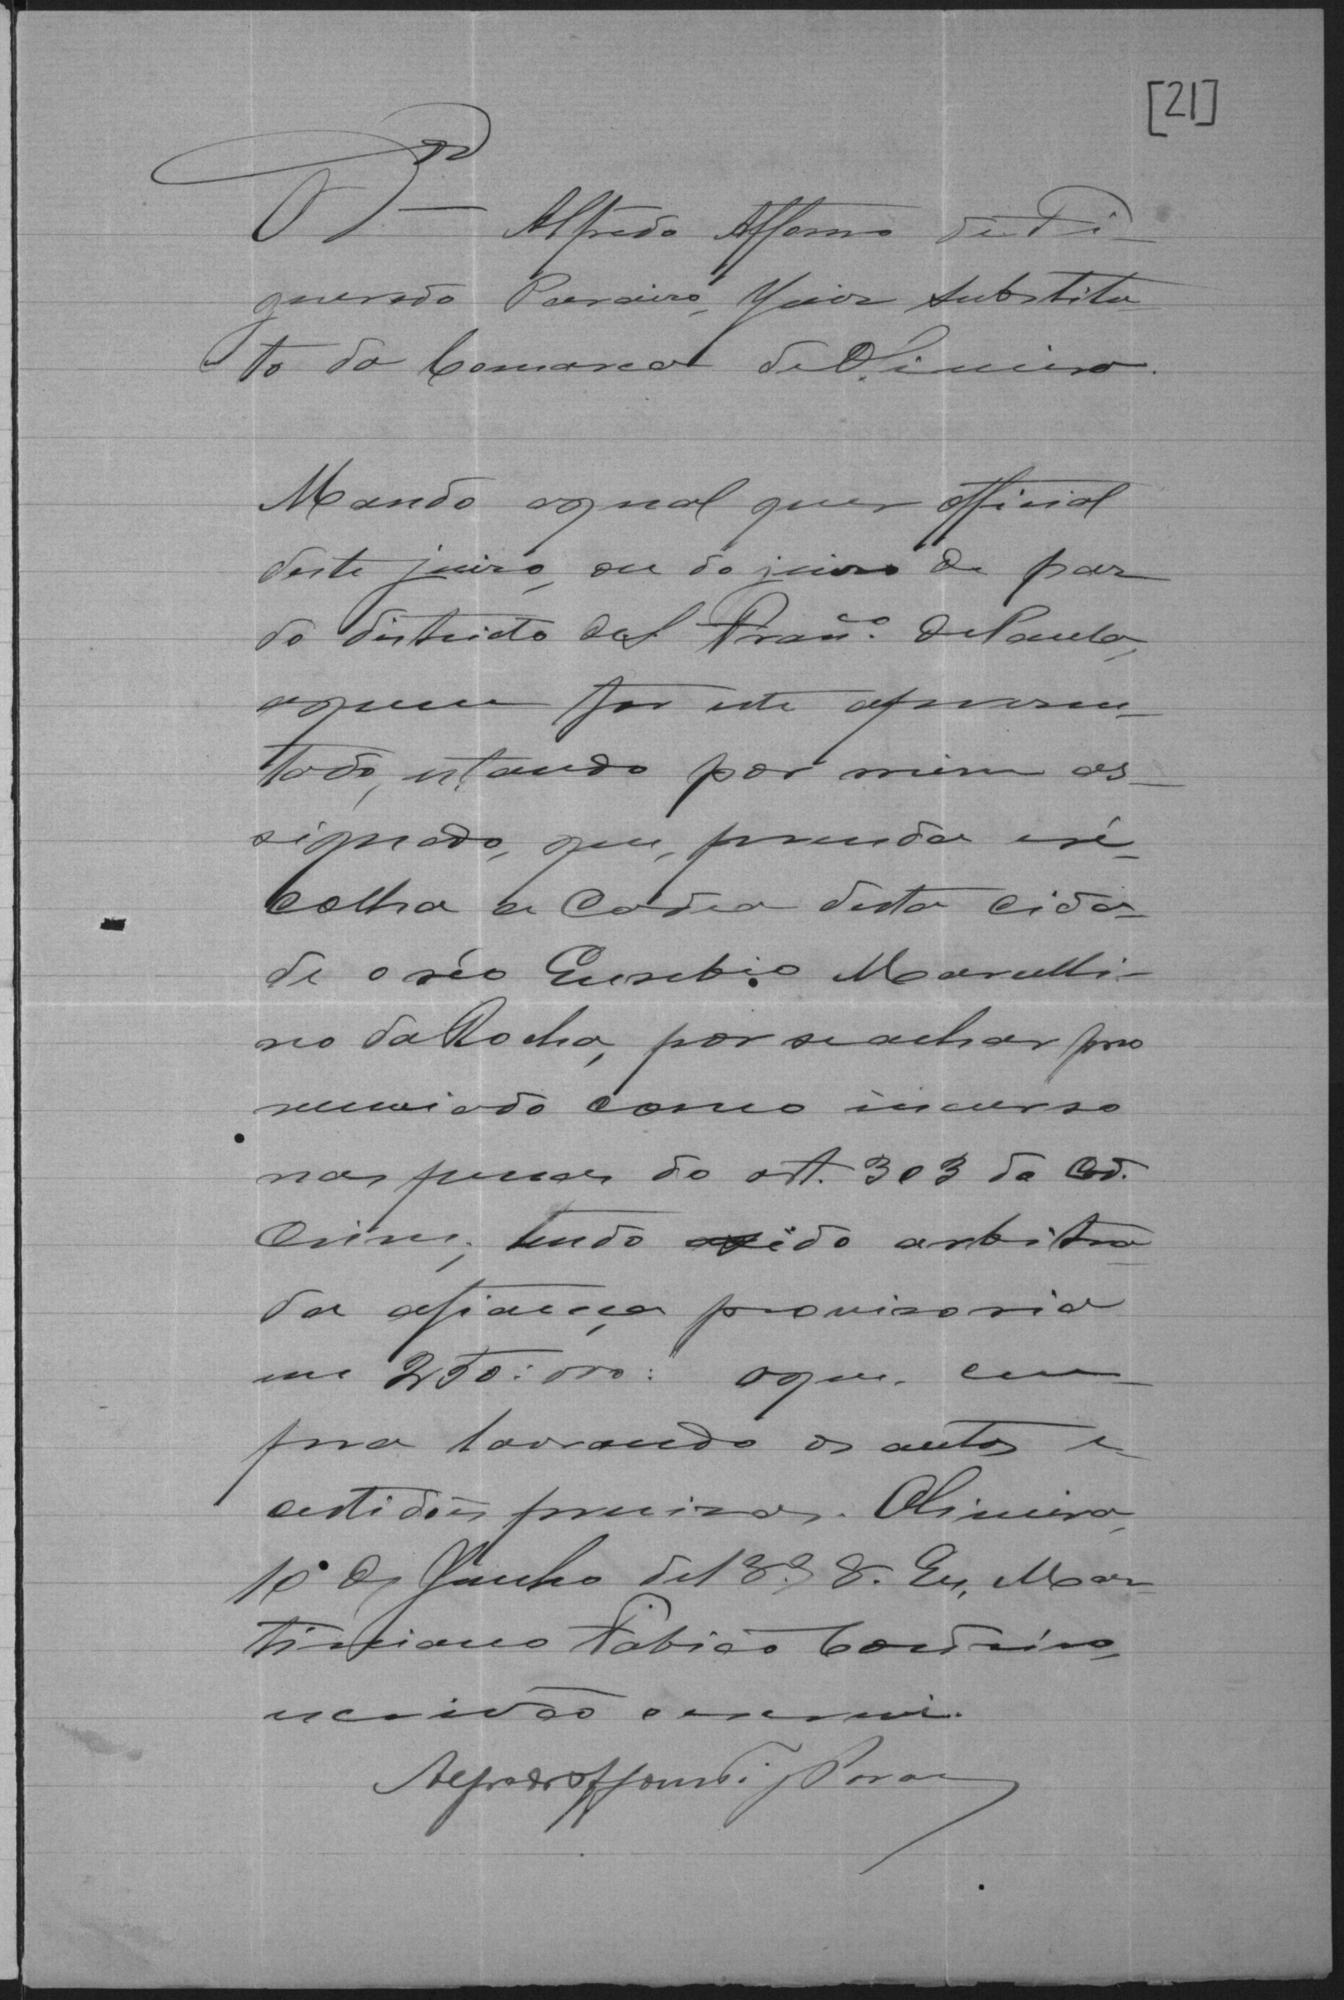 [21]
O Dr. Alfredo Affonso de Fi-
gueredo Paraiso, Juiz substitu-
to da Comarca de Oliveira.
Mando aqual quer official
deste juizo, ou do juizo de paz
do districto de S. Franco. de Paula,
aquem for este apresen-
tado, estando por mim as-
signado, que, prenda e re-
colha a Cadea desta cida-
de o réo Eusebio Marcelli-
no da Rocha, por se achar pro
nunciado como incurso
nas penas do art. 303 do Cod.
Crim., tendo sido arbitra
da afiança provisoria
em 250:000: oque cum-
pra lavrando os autos e
certidões precizas. Oliveira,
1º de Junho de 1898. Eu, Mar-
tiniano Fabião Cordeiro,
escrivão o escrevi.
Alfredo Affonso